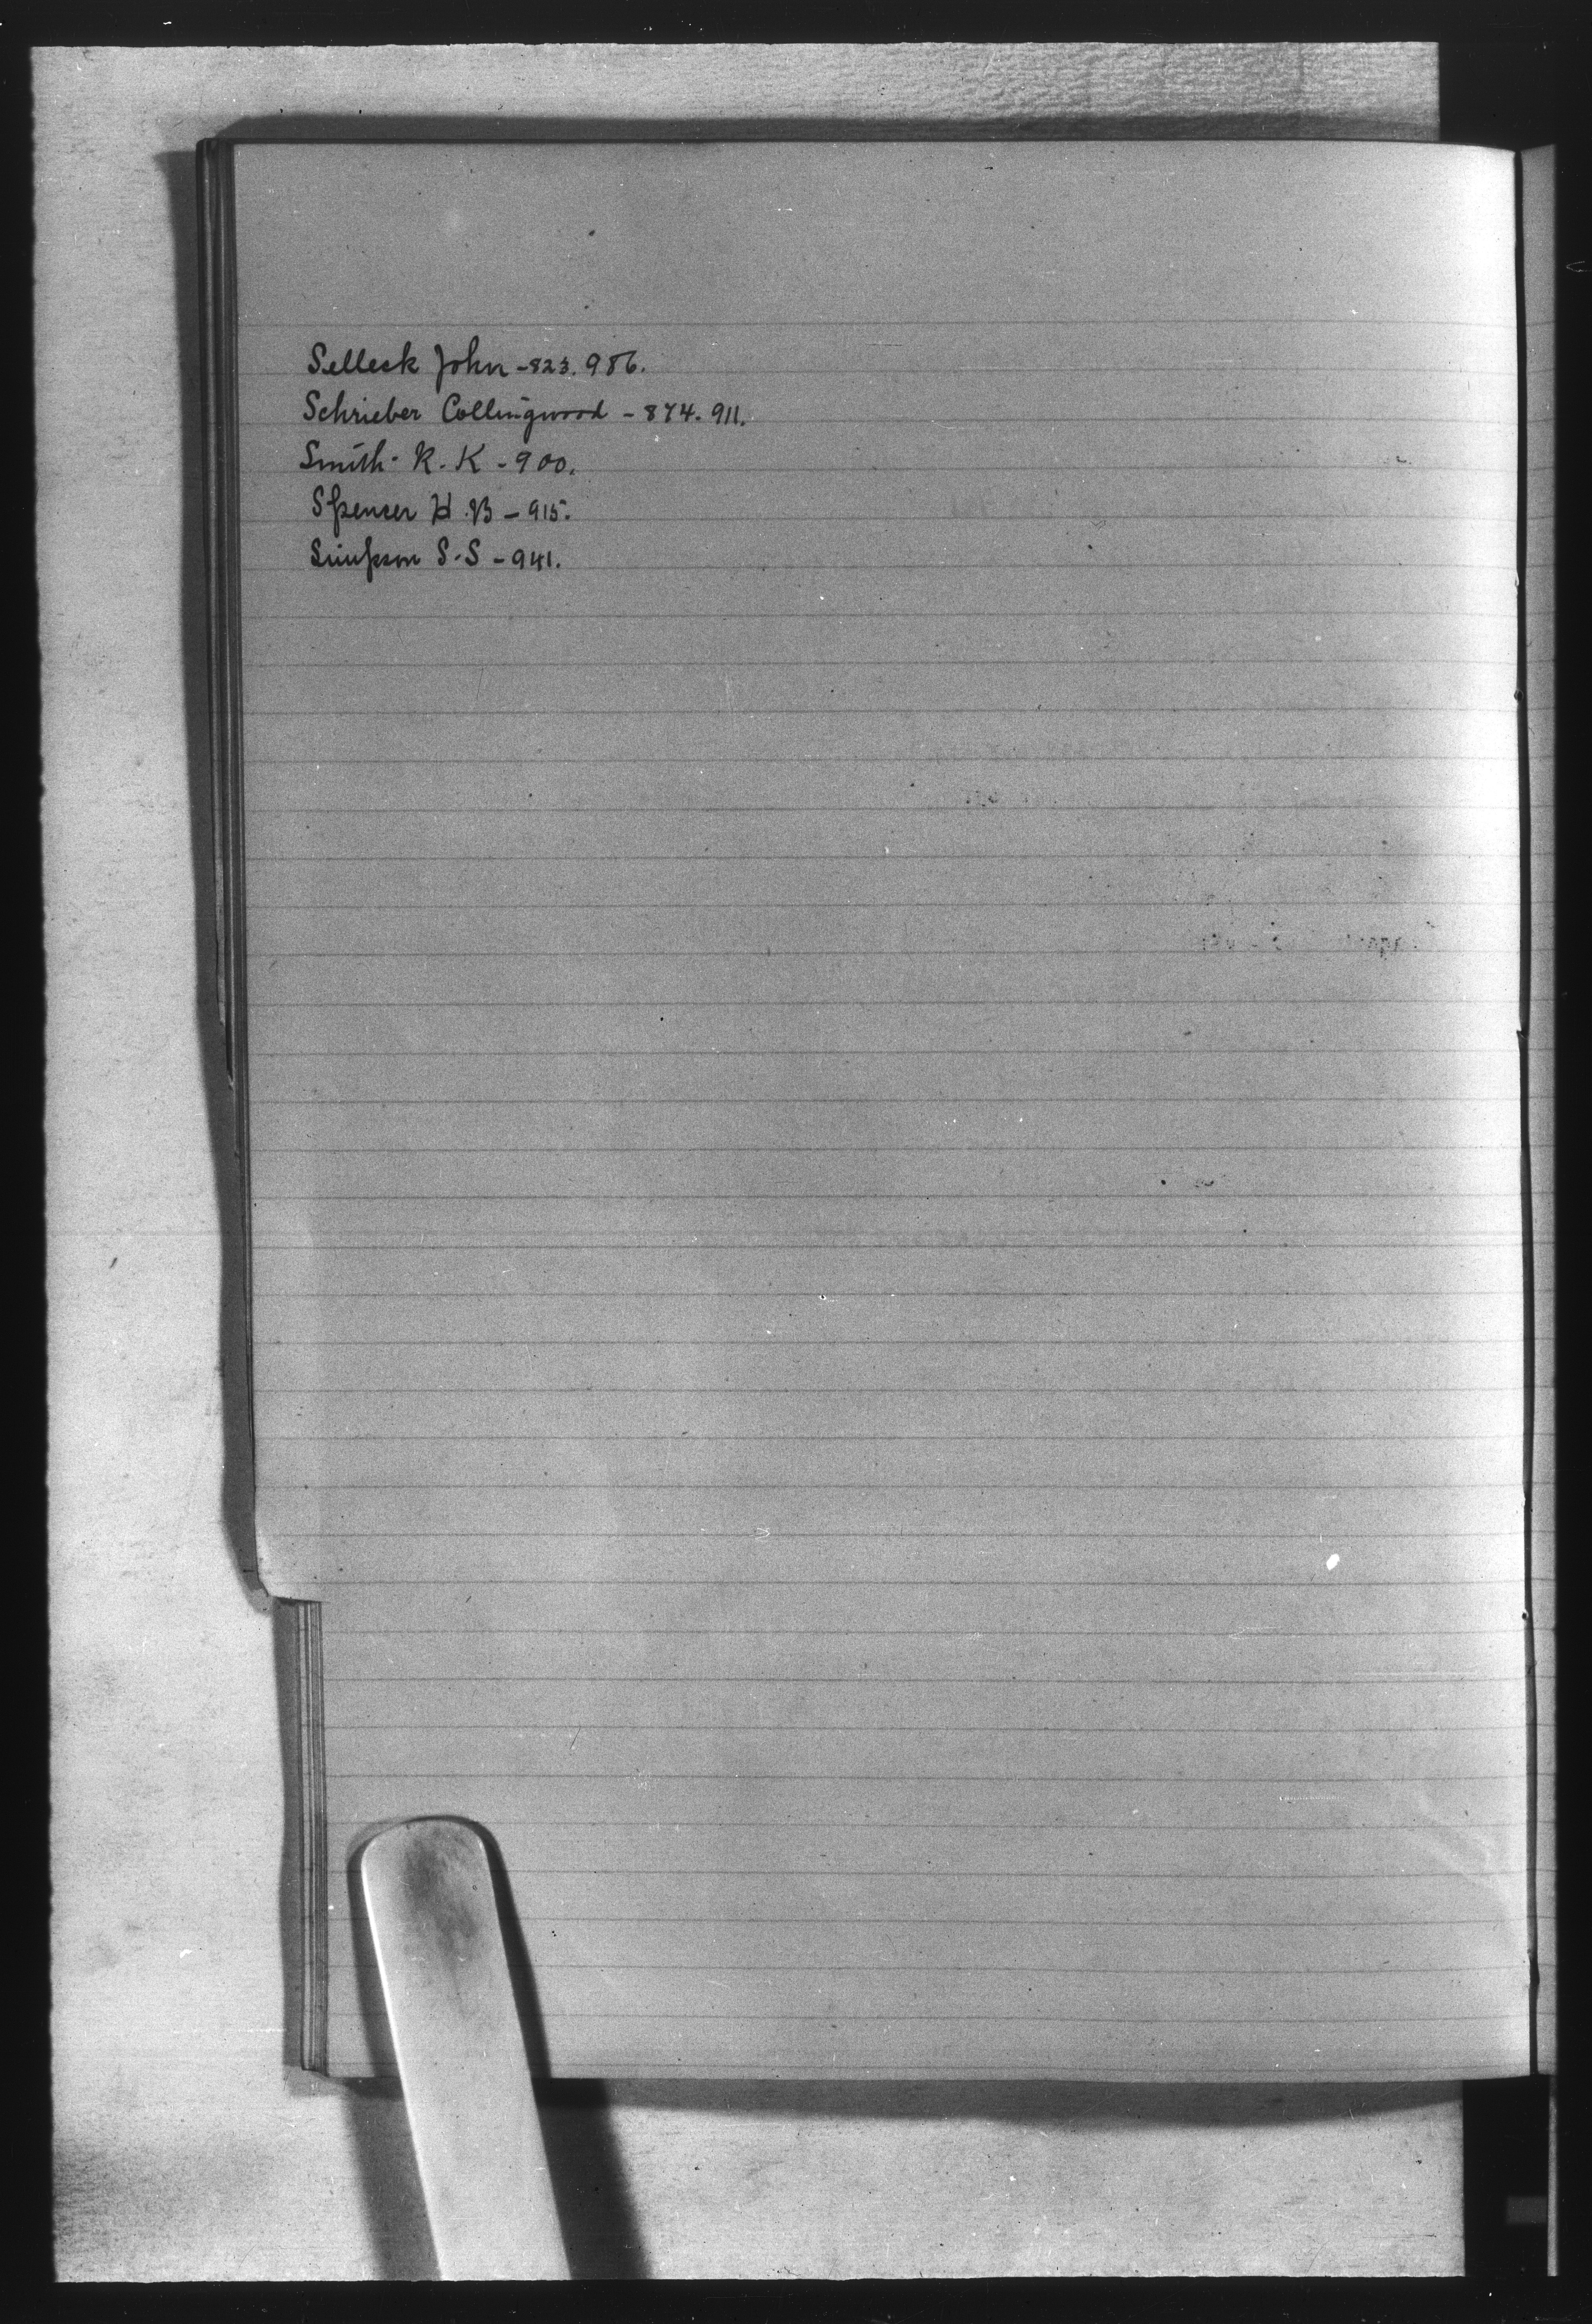 Selleck John - 823. 986.
Schrieber Collingwood - 874. 911.
Smith - R. K - 900.
Spencer H. B - 915.
Simpson S. S - 941.